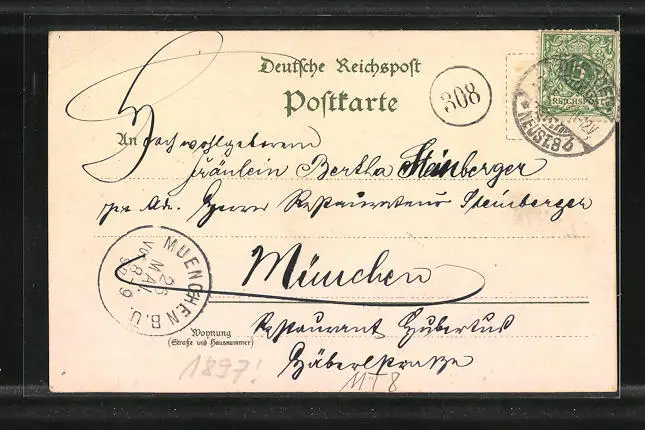 Deutsche Reichspost
Postkarte
308
5
REICHSPOST
NEUST. 8
An Hochwohlgeboren
Fräulein Bertha Steinberger
pr. Ad. Herrn Restaurateur Steinberger
München
MUENCHEN B.Ü.
26
MAI
VOR. 8-9
Wohnung
(Straße und Hausnummer)
Restaurant Hubertus
Häberlstraße
1897!
MT8